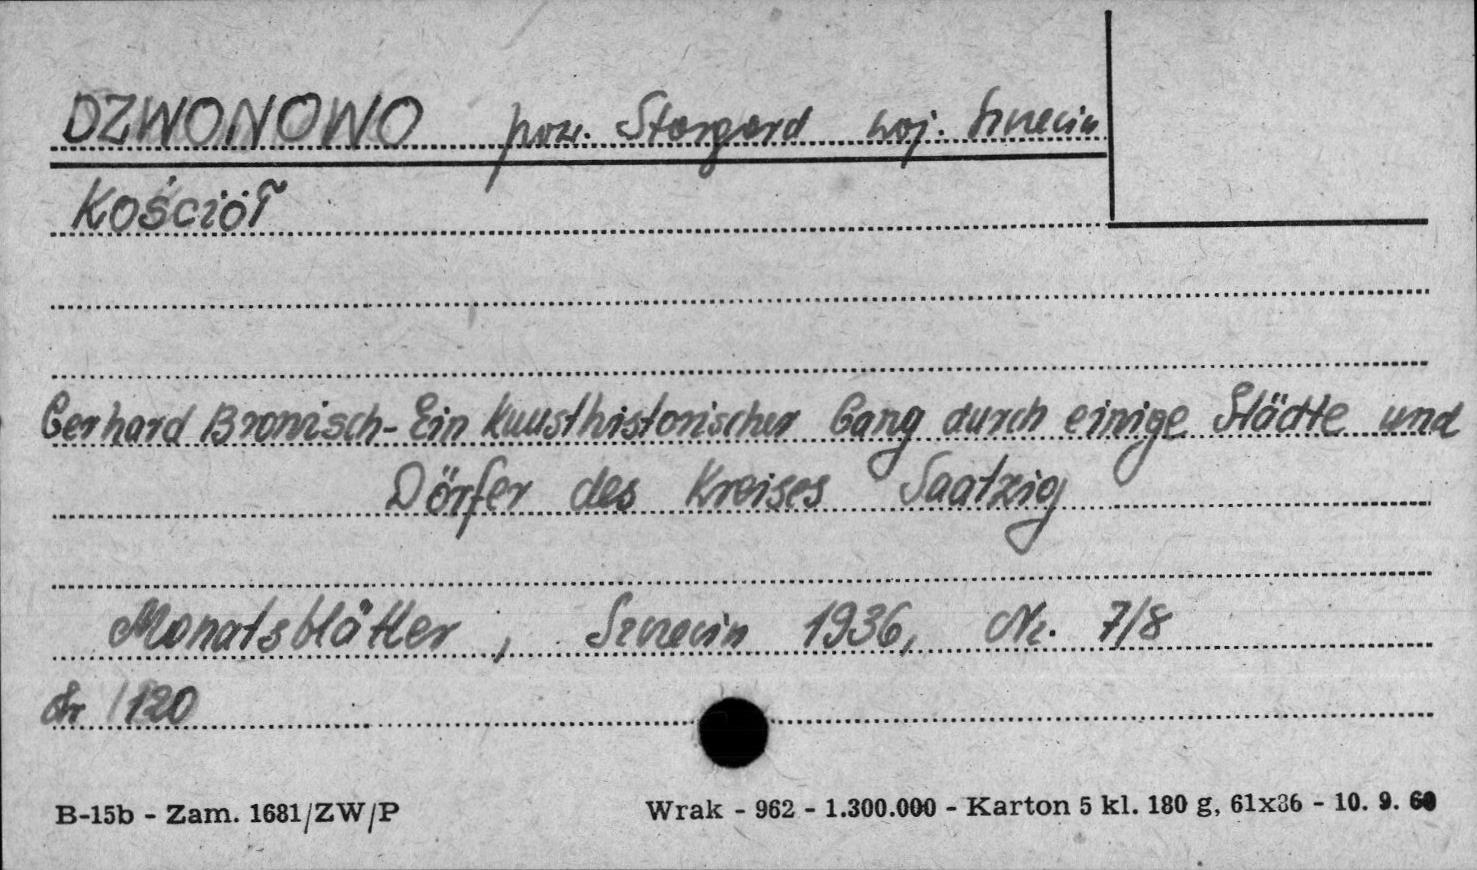 DZWONOWO pow. Stargard woj. Szczecin
Kościół
Gerhard Bronisch - Ein kunsthistorischer Gang durch einige Städte und
Dörfer des Kreises Saatzig
Monatsblätter, Szczecin 1936, Nr. 7/8
str 120
B-15b - Zam. 1681/ZW/P Wrak - 962 - 1.300.000 - Karton 5 kl. 180 g, 61x86 - 10. 9. 60